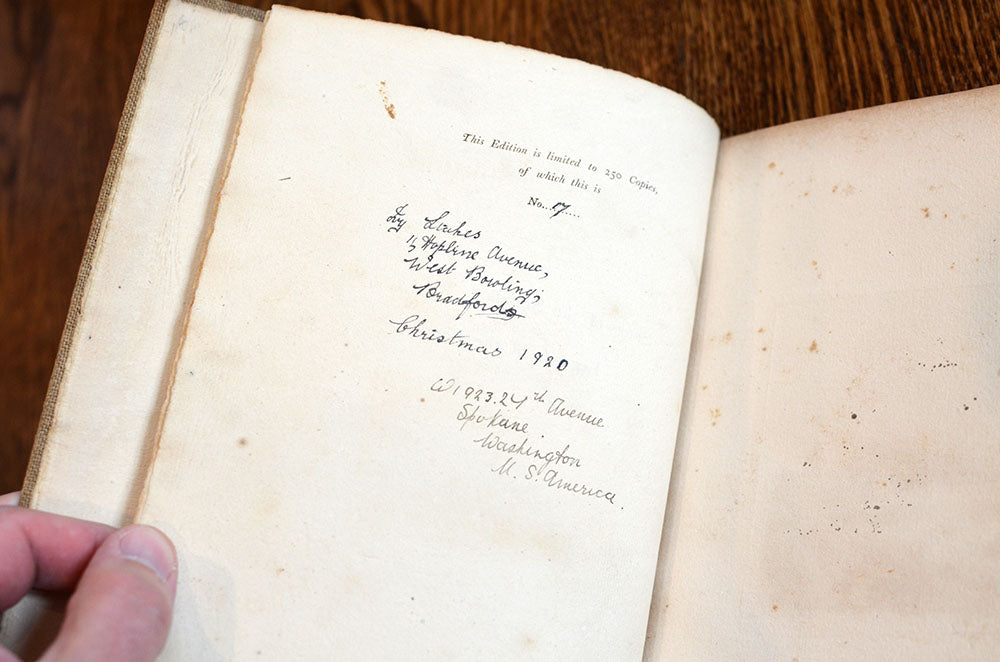 This Edition is limited to 250 Copies,
of which this is
No...17....
Stakes
11, Hopline Avenue,
West Bowling;
Bradford
Christmas 1920
W1923.24th Avenue
Spokane
Washington
U. S. America.